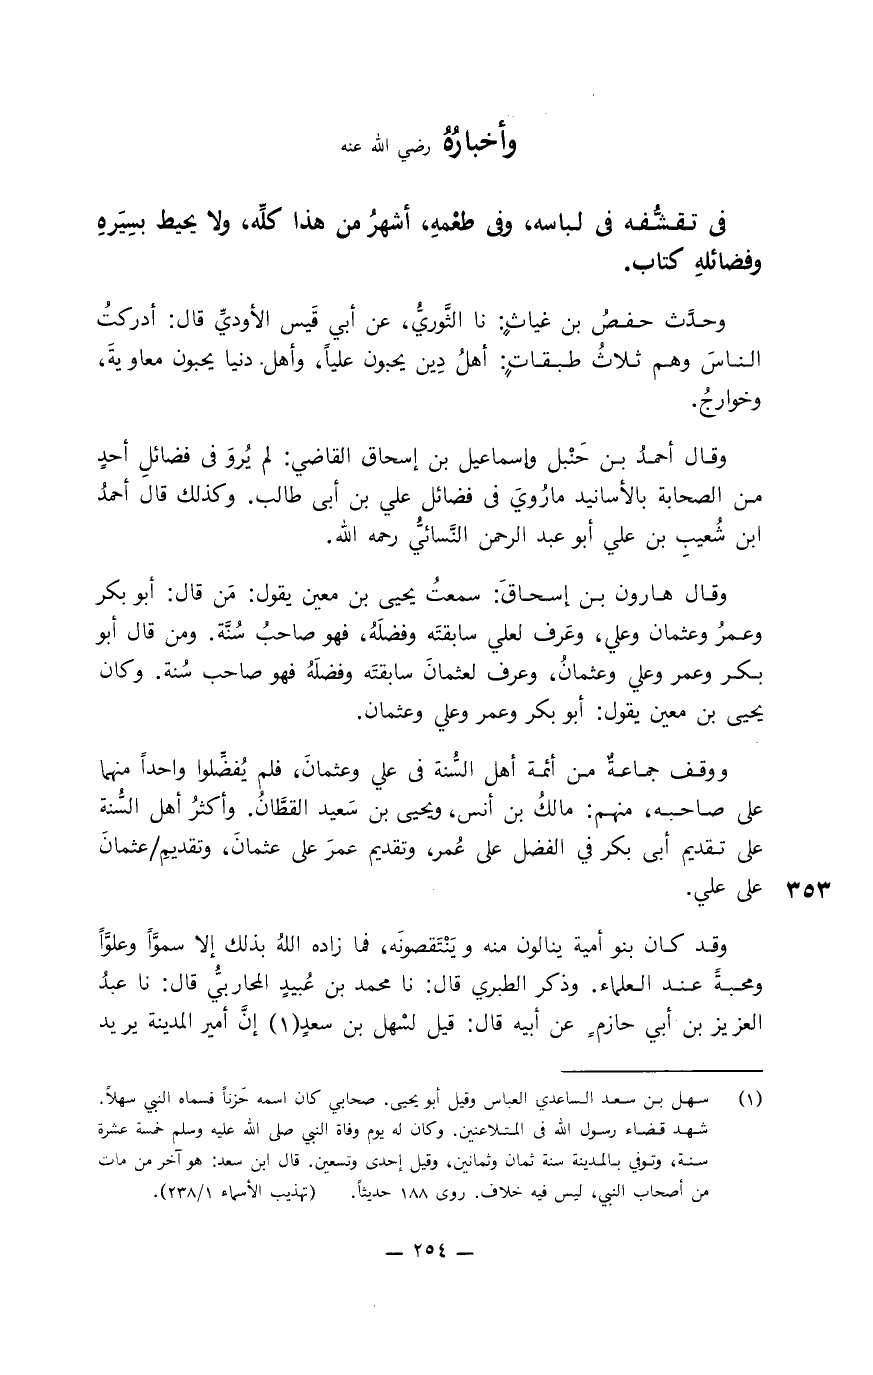 وأخبارُهُ رضي الله عنه
فى تـقـشُّفـه فى لباسه، وفى طعْمهِ، أشهرُ من هذا كلِّه، ولا يحيط بسِيَرهِ
وفضائلهِ كتاب.
وحدَّث حفصُ بن غياثٍ: نا الثَّوريُّ، عن أبي قَيس الأوديِّ قال: أدركتُ
الناسَ وهم ثلاثُ طبقاتٍ: أهلُ دِين يحبون علياً، وأهل دنيا يحبون معاويةَ،
وخوارجُ.
وقال أحمدُ بن حَنْبل وإسماعيل بن إسحاق القاضي: لم يُروَ فى فضائلِ أحدٍ
من الصحابة بالأسانيد مارُويَ فى فضائل علي بن أبى طالب. وكذلك قال أحمدُ
ابن شُعيبِ بن علي أبو عبد الرحمن النَّسائيُّ رحمه الله.
وقال هارون بن إسحاقَ: سمعتُ يحيى بن معين يقول: مَن قال: أبو بكر
وعمرُ وعثمان وعلي، وعَرف لعلي سابقتَه وفضلَهُ، فهو صاحبُ سُنَّة. ومن قال أبو
بكر وعمر وعلي وعثمانُ، وعرف لعثمانَ سابقتَه وفضلَهُ فهو صاحب سُنة. وكان
يحيى بن معين يقول: أبو بكر وعمر وعلي وعثمان.
ووقف جماعةٌ من أئمة أهل السُّنة فى علي وعثمانَ، فلم يُفضِّلوا واحداً منهما
على صاحبه، منهم: مالكُ بن أنس، ويحيى بن سَعيد القطَّانُ. وأكثرُ أهل السُّنة
على تقديم أبى بكر في الفضل على عُمر، وتقديم عمرَ على عثمانَ، وتقديمِ/عثمانَ
على علي. ٣٥٣
وقد كان بنو أمية ينالون منه ويَنْتَقصونَه، فما زاده اللهُ بذلك إلا سموَّاً وعلوَّاً
ومحبةً عند العلماء. وذكر الطبري قال: نا محمد بن عُبيدٍ المحاربيُّ قال: نا عبدُ
العزيز بن أبي حازمٍ عن أبيه قال: قيل لسْهل بن سعدٍ(١) إنَّ أمير المدينة يريد
(١) سهل بن سعد الساعدي العباس وقيل أبو يحيى. صحابي كان اسمه حَزناً فسماه النبي سهلاً.
شهد قضاء رسول الله فى المتلاعنين. وكان له يوم وفاة النبي صلى الله عليه وسلم خمسة عشرة
سنة، وتوفي بالمدينة سنة ثمان وثمانين، وقيل إحدى وتسعين. قال ابن سعد: هو آخر من مات
من أصحاب النبي، ليس فيه خلاف. روى ١٨٨ حديثاً. (تهذيب الأسماء ٢٣٨/١).
— ٢٥٤ —